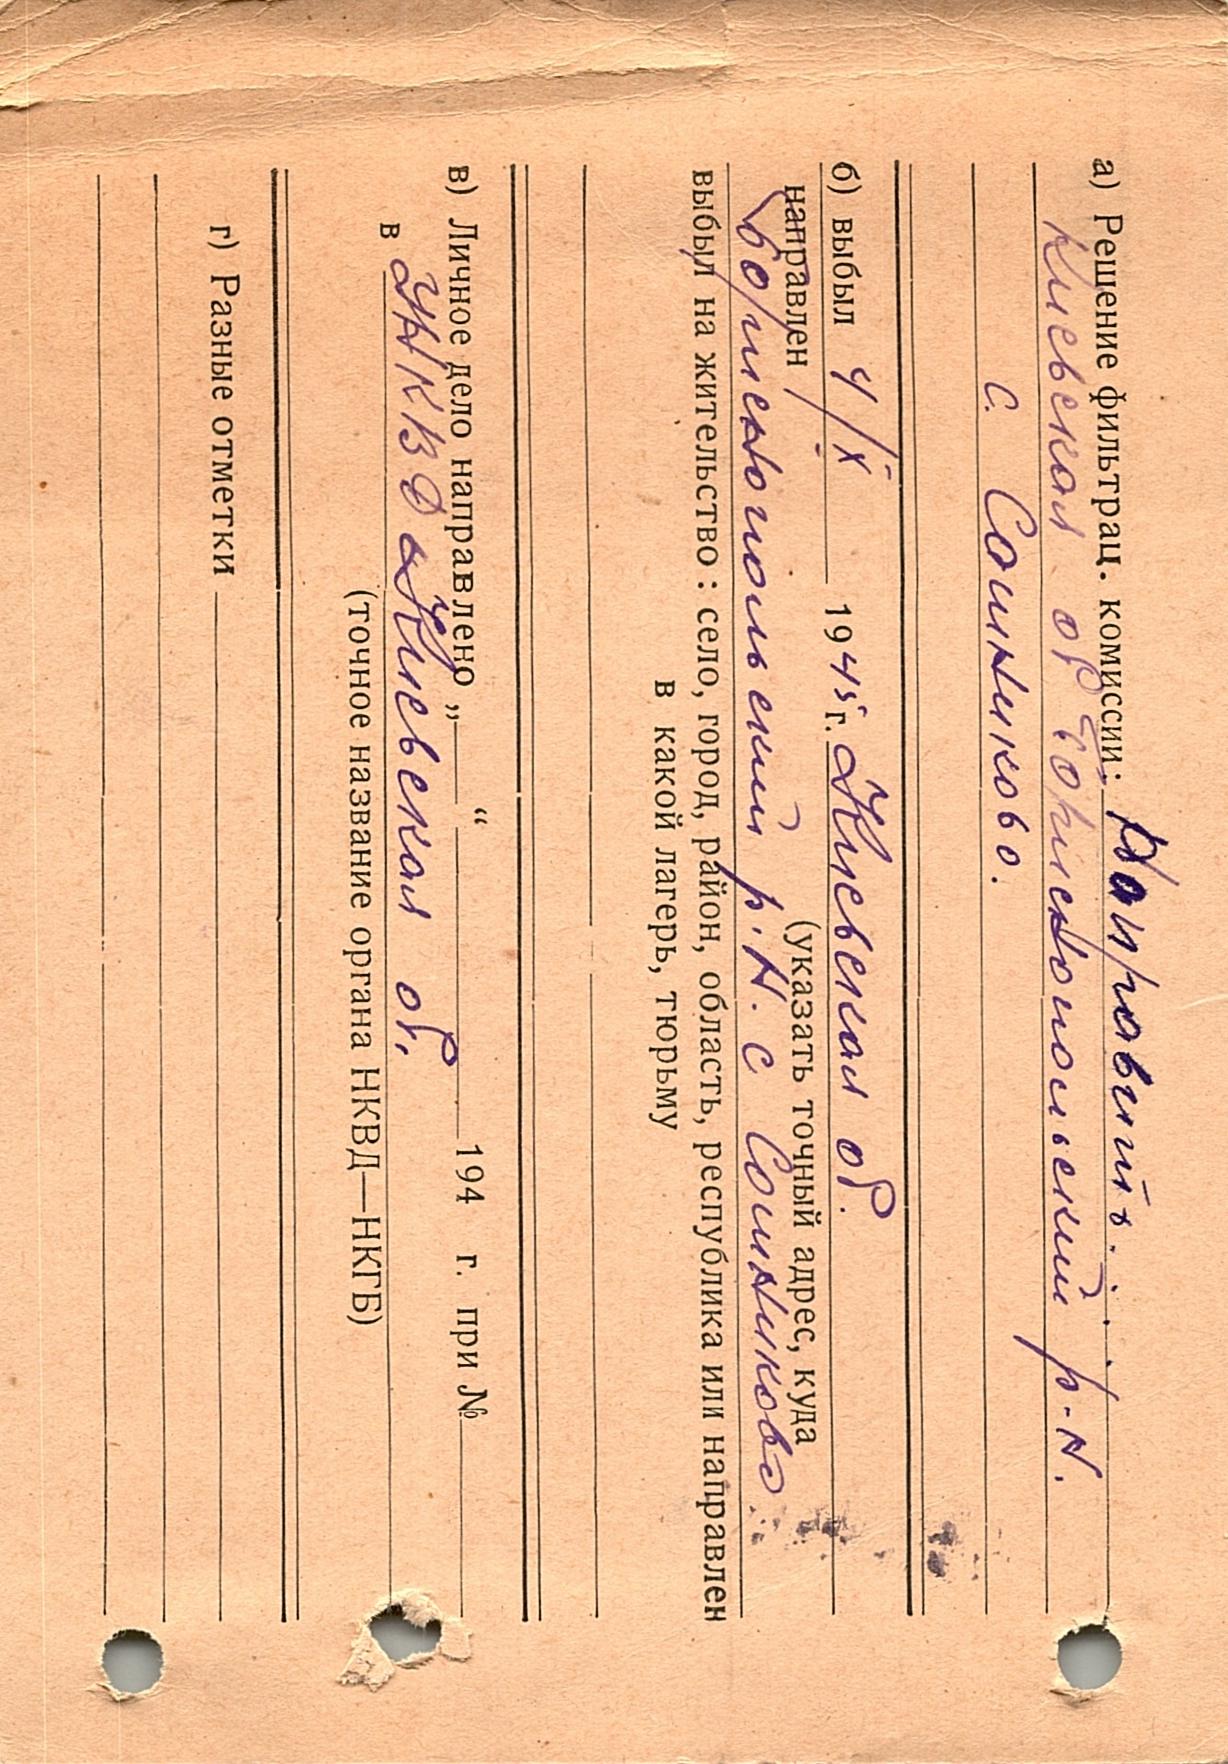 а) Решение фильтрац. комиссии: Направить.
Киевская об Бориспольский р-н.
с. Сошниково.
б) выбыл 4/X 1945 г. Киевская об.
направлен (указать точный адрес, куда
Бориспольский р.н. с Сошниково.
выбыл на жительство: село, город, район, область, республика или направлен
в какой лагерь, тюрьму
в) Личное дело направлено „ “ 194 г. при №
в УНКВД Киевская об.
(точное название органа НКВД—НКГБ)
г) Разные отметки